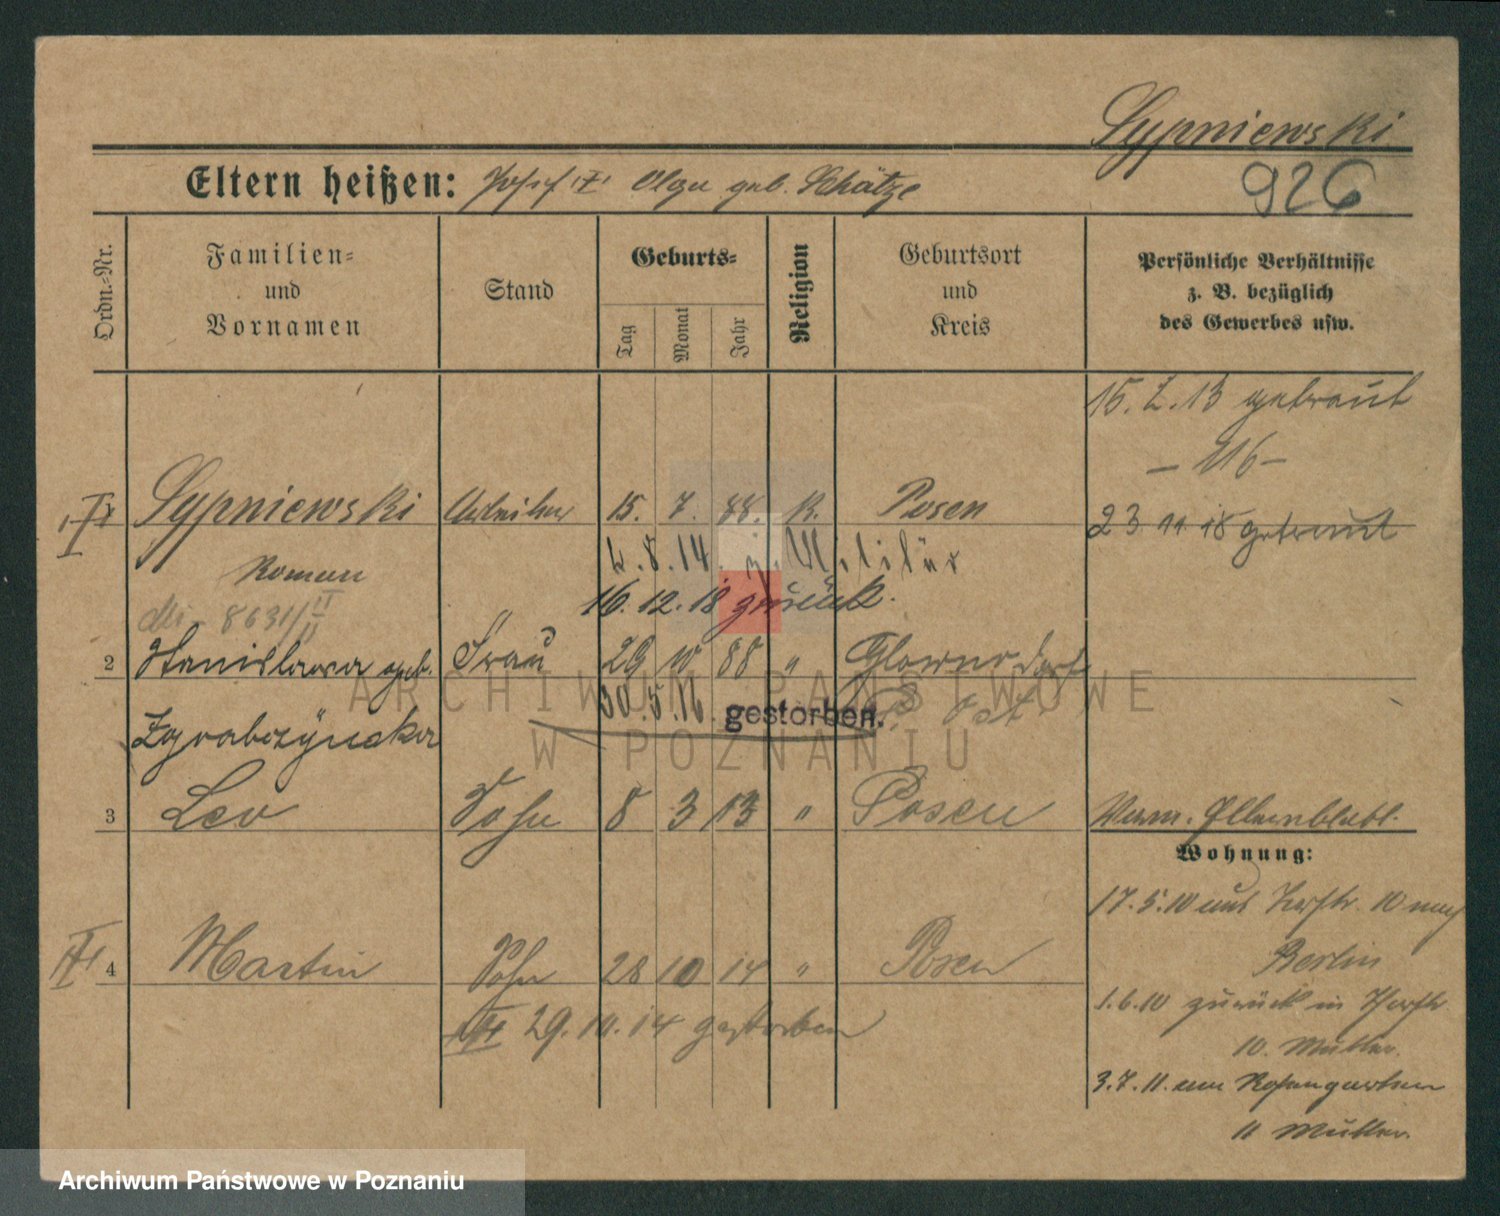 Sypniewski
926
Eltern heißen: Josef I Olga geb. Schätze
Ordn.-Nr.
Familien-
und
Vornamen
Stand
Geburts-
Tag
Monat
Jahr
Religion
Geburtsort
und
Kreis
Persönliche Verhältnisse
z. B. bezüglich
des Gewerbes usw.
getraut
116
Sypniewski Arbeiter 15. 7. 88. K. Posen
23 11 18 getraut
Roman
4.8.14. z. Militär
16.12.18 zurück.
8631/II
2 Stanislawa geb. Frau 29 10 88 "
30.5.16 gestorben. Ost
3 Leo Sohn 8 3 13 " Posen
Wohnung:
17.5.10 aus 10 nach
Berlin
4 Martin Sohn 28 10 14 " Posen
1.6.10 zurück in
29.10.14 gestorben
10. Mutter.
3.7.11. Rosengarten
11 Mutter.
ARCHIWUM PAŃSTWOWE
W POZNANIU
Archiwum Państwowe w Poznaniu